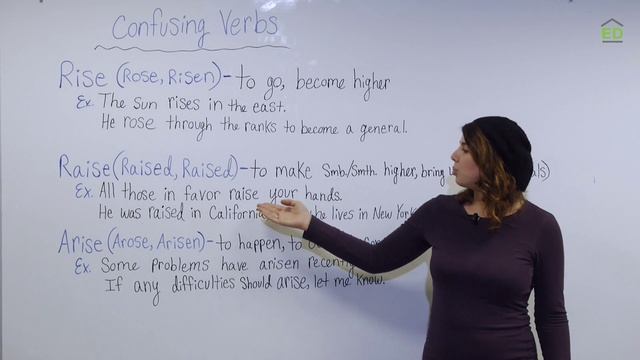 ED
Confusing Verbs
Rise (Rose, Risen) - to go, become higher
Ex. The sun rises in the east.
He rose through the ranks to become a general.
Raise (Raised, Raised) - to make Smb/Smth higher, bring
Ex. All those in favor raise your hands.
He was raised in California he lives in New York
Arise (Arose, Arisen) - to happen, to
Ex. Some problems have arisen recently
If any difficulties should arise, let me know.